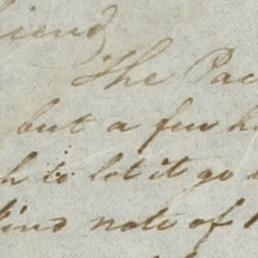 riend
The Pac
but a few h
h to let it go
kind note of